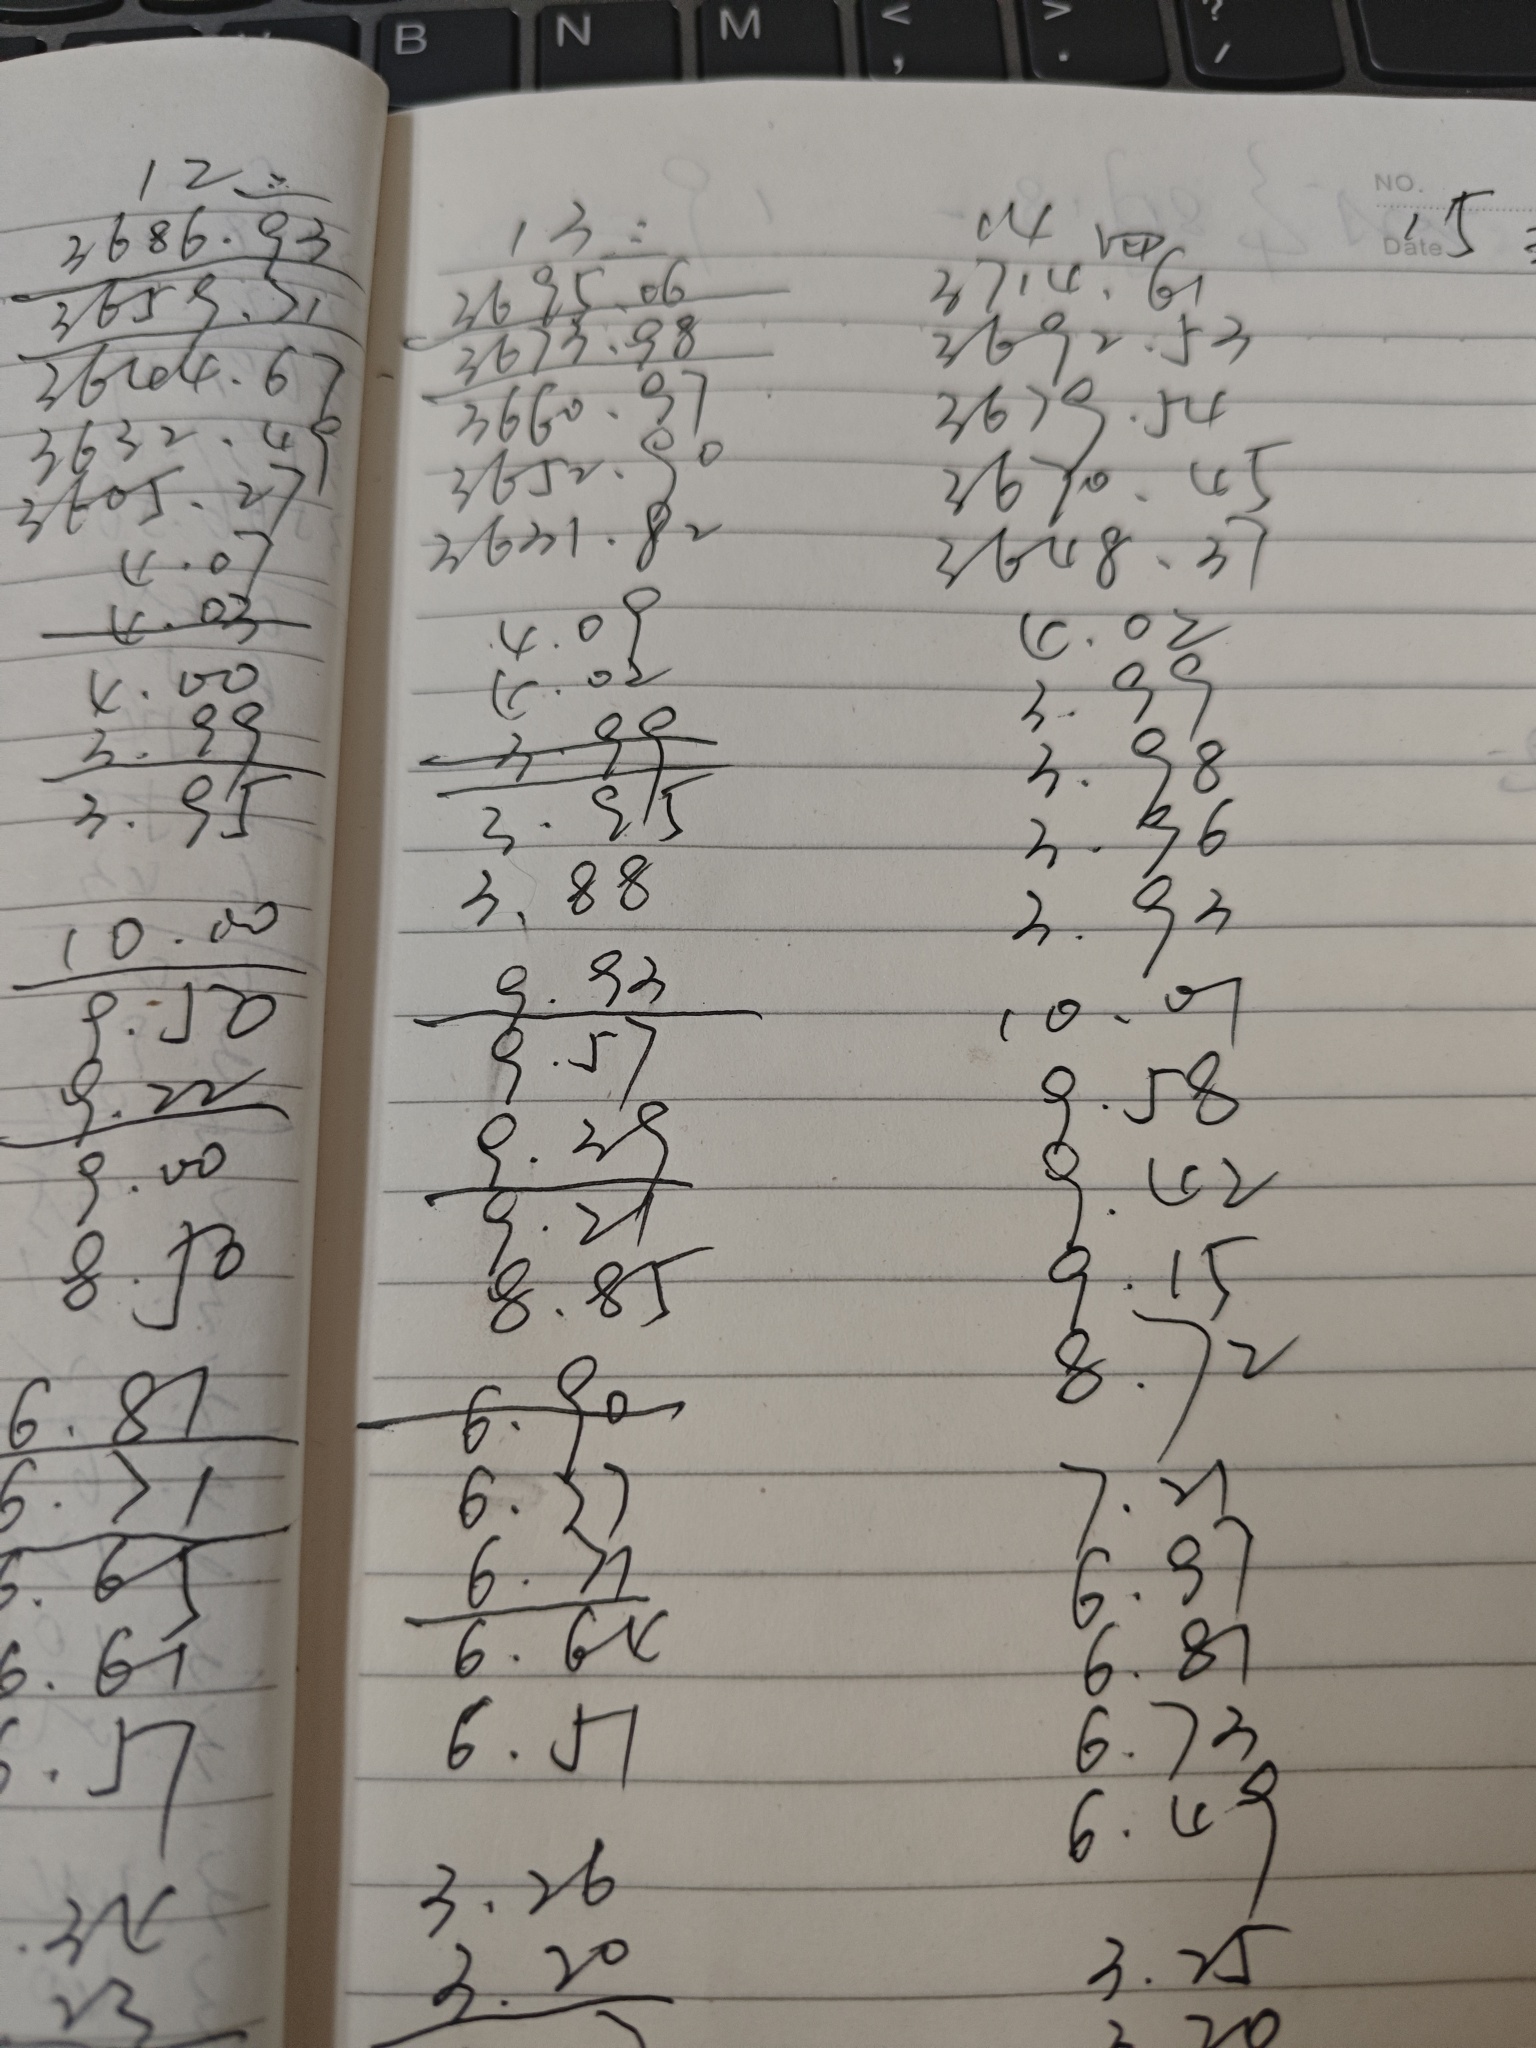 B N M < , > . ? /
12 =
3686.93
3659.71
3644.67
3632.49
3605.27
4.07
4.03
4.00
3.99
3.95
10.00
9.50
9.22
9.00
8.50
6.87
6.71
6.65
6.61
6.57
.34
23
13 =
3695.06
3673.98
3660.97
3652.90
3631.82
4.09
4.02
3.99
3.95
3.88
9.93
9.57
9.29
9.21
8.85
6.90
6.77
6.71
6.64
6.51
3.26
3.20
14
3714.61
3692.53
3679.54
3670.45
3648.37
4.02
3.99
3.98
3.96
3.93
10.01
9.58
9.42
9.15
8.72
7.21
6.97
6.81
6.73
6.49
3.25
3.20
NO.
Date
15